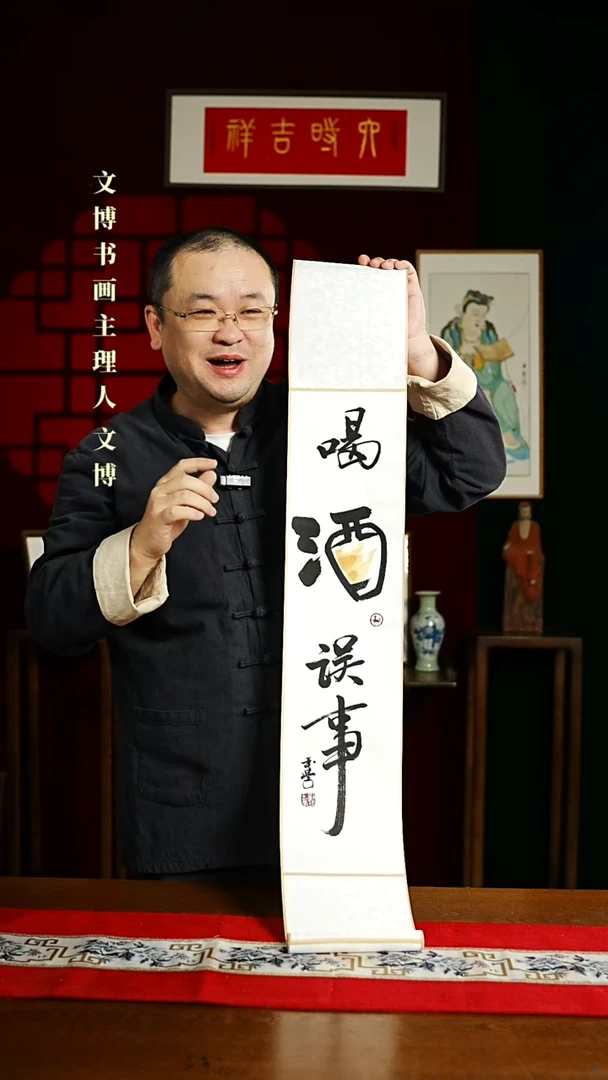 六時吉祥
文博书画主理人文博
喝酒误事